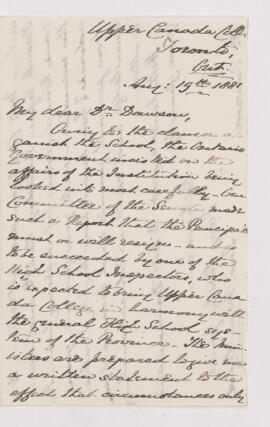 Upper Canada Coll.
Toronto,
Ont.
Aug: 19th 1881
My dear Dr. Dawson,
Owing to the clamor a-
gainst the School, the Ontario
Government insisted on the
affairs of the Institution being
looked into most carefully. Our
Committee of the Senate made
such a Report that the Principal
must or will resign - and is
to be succeeded by one of the
High School Inspectors, who
is expected to bring Upper Cana-
da College in harmony with
the general High School sys-
tem of the Province. The Min-
isters are prepared to give me
a written statement to the
effect that circumstances only